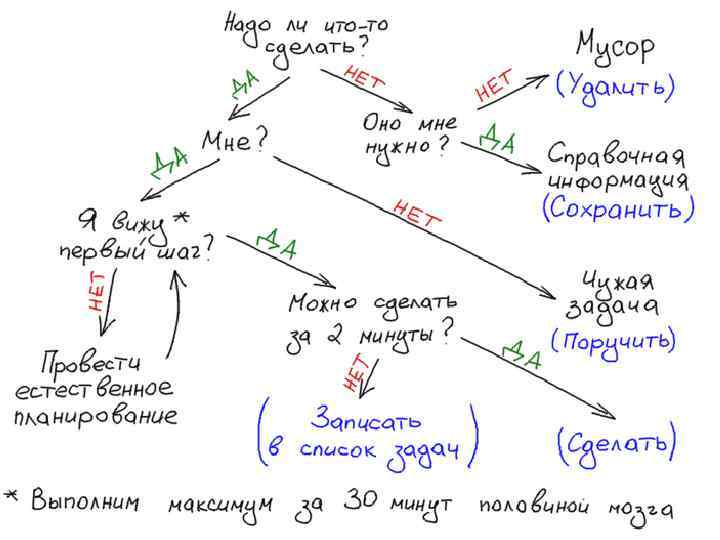 Надо ли что-то
сделать?
ДА
НЕТ
Мне?
Оно мне
нужно?
НЕТ
Мусор
(Удалить)
ДА
Справочная
информация
(Сохранить)
ДА
НЕТ
Я вижу *
первый шаг?
Чужая
задача
(Поручить)
НЕТ
ДА
Провести
естественное
планирование
Можно сделать
за 2 минуты?
НЕТ
ДА
(Записать
в список задач)
(Сделать)
* Выполним максимум за 30 минут половиной мозга